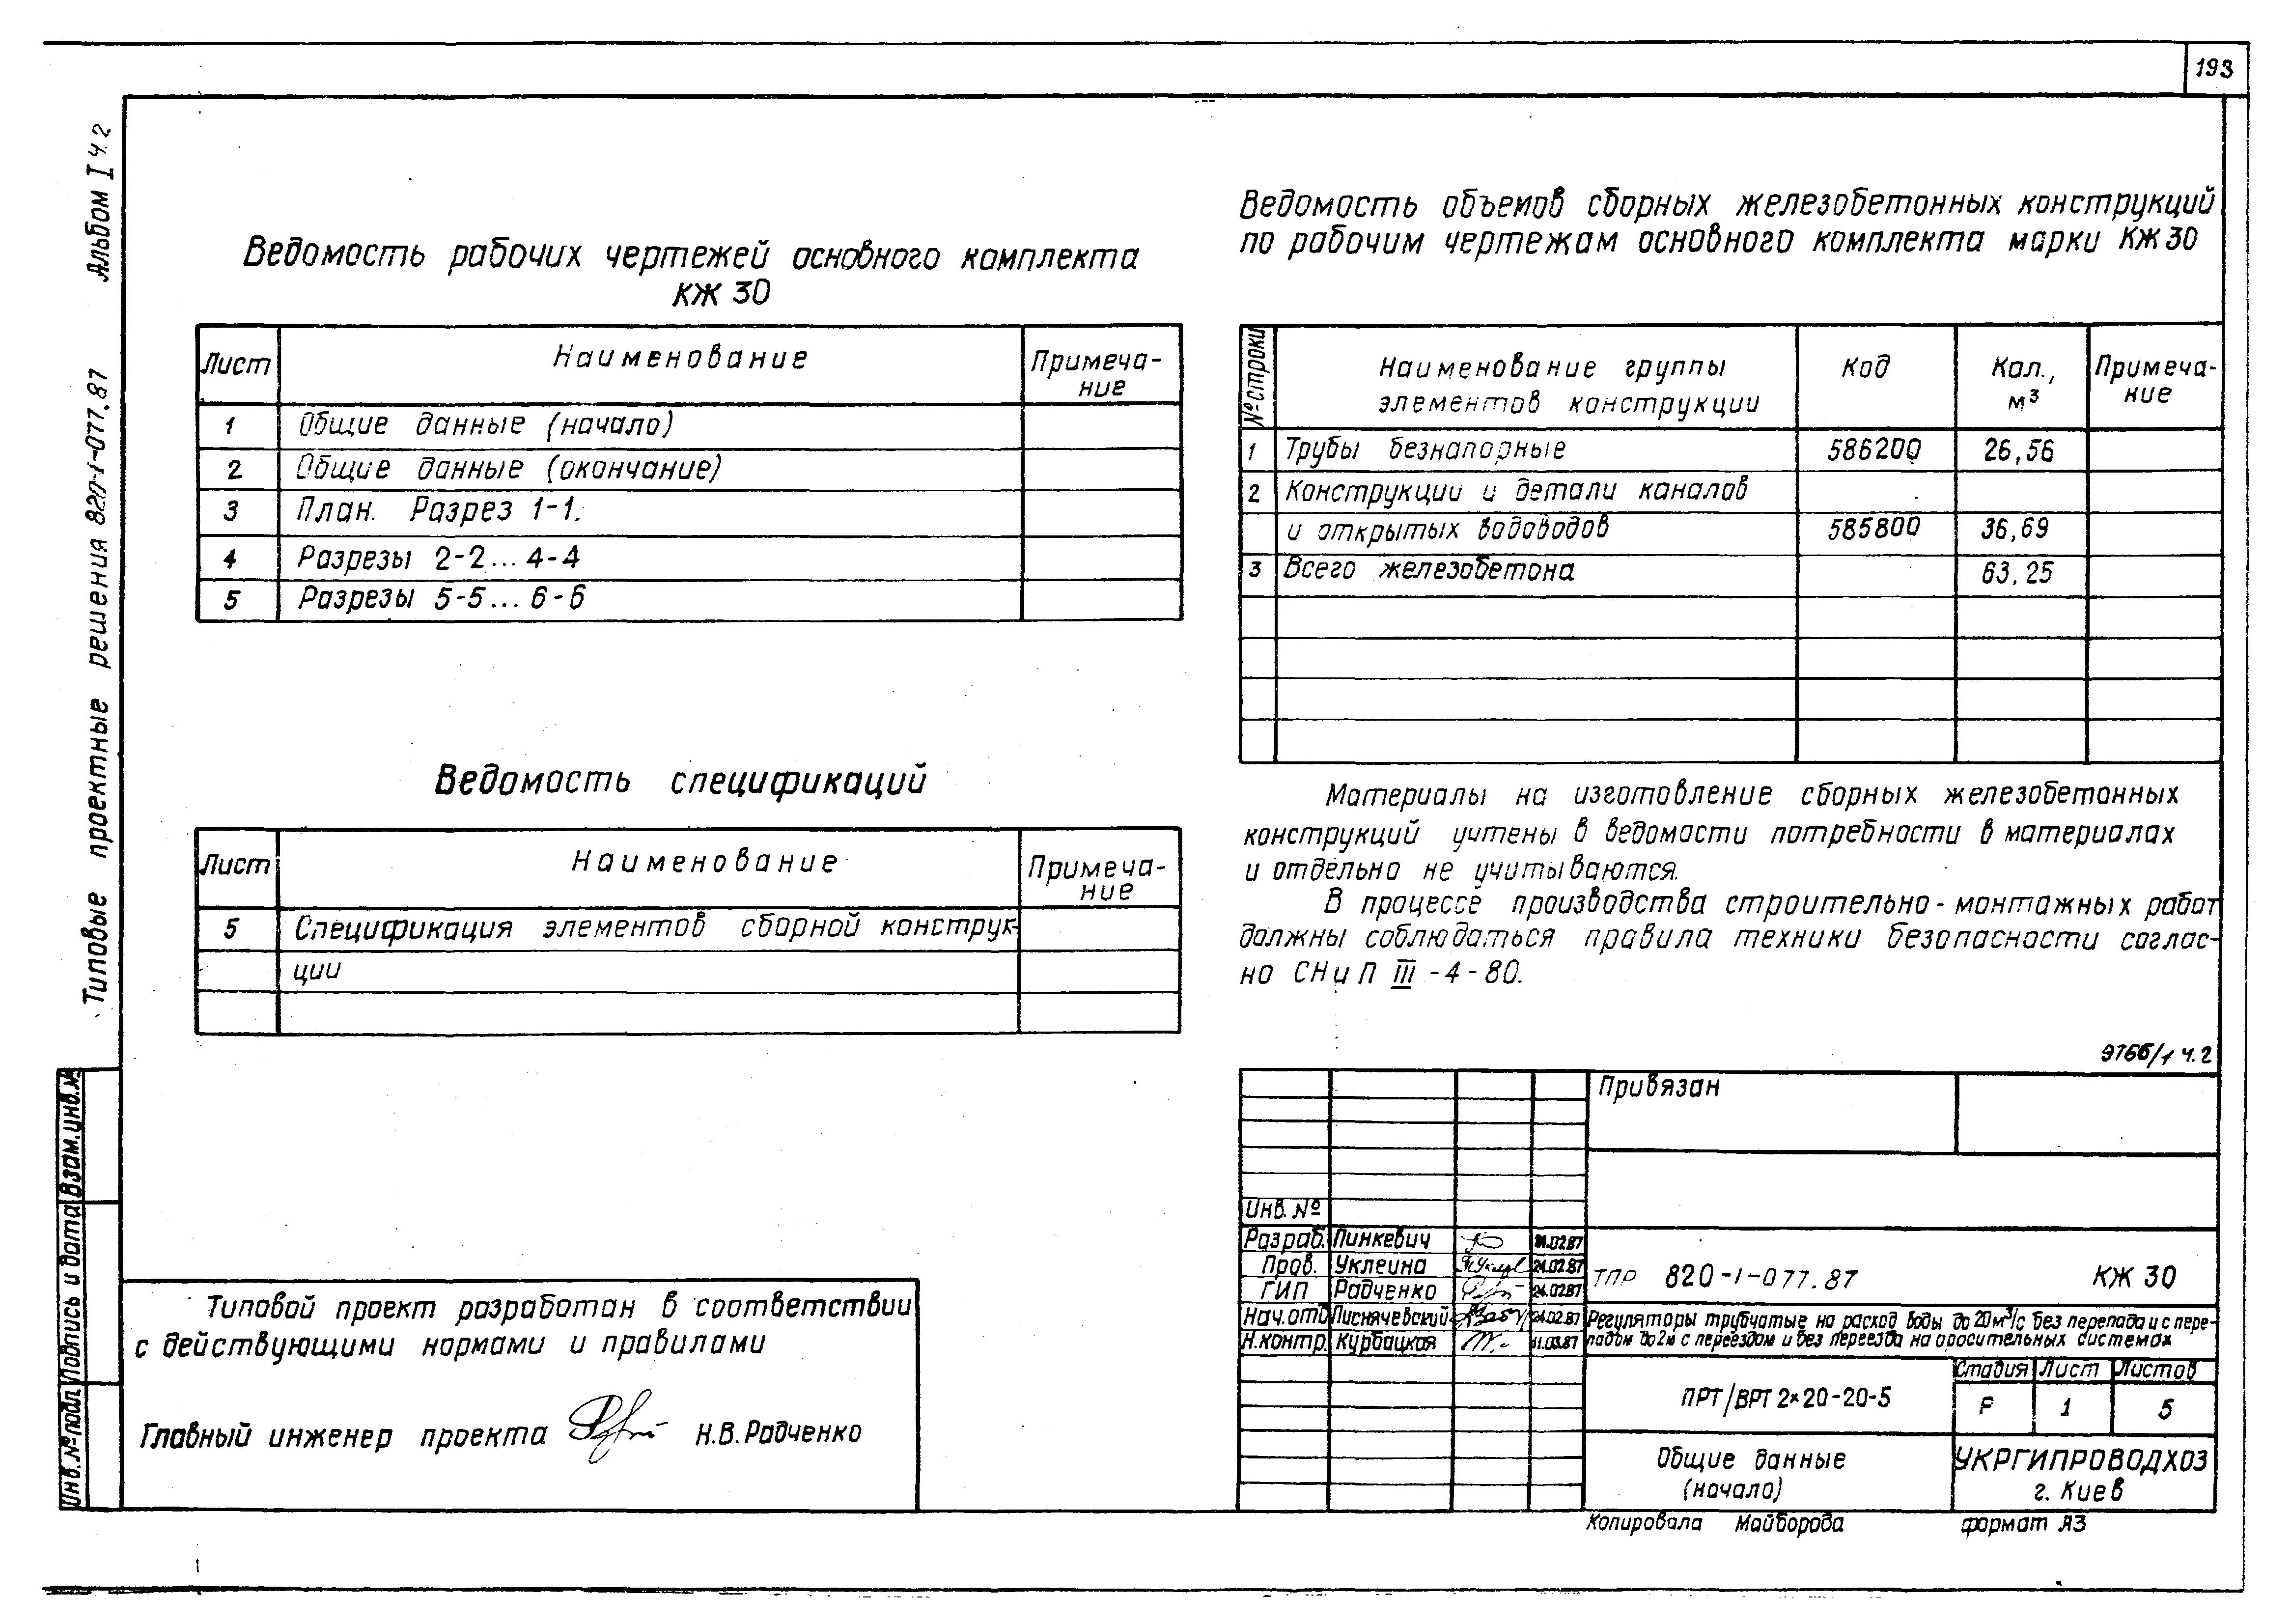 193
Альбом I ч.2
Типовые проектные решения 820-1-077.87
Ведомость рабочих чертежей основного комплекта
КЖ 30
Лист Наименование Примеча-
ние
1 Общие данные (начало)
2 Общие данные (окончание)
3 План. Разрез 1-1.
4 Разрезы 2-2...4-4
5 Разрезы 5-5...6-6
Ведомость спецификаций
Лист Наименование Примеча-
ние
5 Спецификация элементов сборной конструк-
ции
Ведомость объемов сборных железобетонных конструкций
по рабочим чертежам основного комплекта марки КЖ 30
№ строки Наименование группы Код Кол., Примеча-
элементов конструкции м³ ние
1 Трубы безнапорные 586200 26,56
2 Конструкции и детали каналов
и открытых водоводов 585800 36,69
3 Всего железобетона 63,25
Материалы на изготовление сборных железобетонных
конструкций учтены в ведомости потребности в материалах
и отдельно не учитываются.
В процессе производства строительно-монтажных работ
должны соблюдаться правила техники безопасности соглас-
но СНиП III-4-80.
9766/1 ч.2
Взам.инв.№
Подпись и дата
Инв.№подл.
Типовой проект разработан в соответствии
с действующими нормами и правилами
Главный инженер проекта Н.В.Радченко
Привязан
Инв. №
Разраб. Линкевич 24.02.87
Пров. Уклеина 24.02.87
ГИП Радченко 24.02.87
Нач.отд Лиснячевский 24.02.87
Н.контр. Курбацкая 11.03.87
ТПР 820-1-077.87 КЖ 30
Регуляторы трубчатые на расход воды до 20м³/с без перепада и с пере-
падом до 2м с переездом и без переезда на оросительных системах
ПРТ/ВРТ 2×20-20-5
Стадия Лист Листов
Р 1 5
Общие данные
(начало)
УКРГИПРОВОДХОЗ
г. Киев
Копировала Майборода формат А3